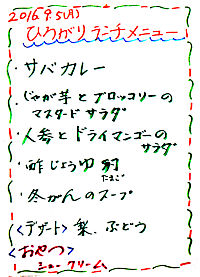 2016.9.5(月)
ひろがりランチメニュー
・サバカレー
・じゃが芋とブロッコリーの
マスタードサラダ
・人参とドライマンゴーの
サラダ
・酢じょうゆ卵
たまご
・冬がんのスープ
<デザート> 梨、ぶどう
<おやつ>
シュークリーム